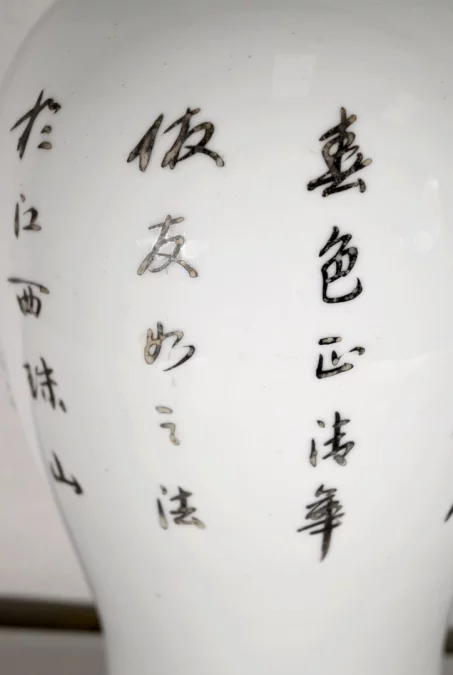 春色正清華
仿友如之法
於江西珠山